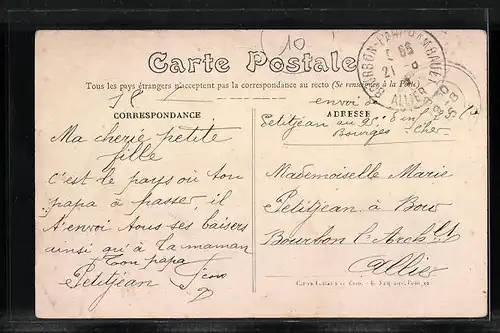 (10)
Carte Postale
Tous les pays étrangers n'acceptent pas la correspondance au recto (Se renseigner à la Poste)
CORRESPONDANCE
ADRESSE
envoi de
Petitjean au 95e
Bourges Cher
Ma cherie petite
fille
C'est le pays où ton
papa à passer il
t'envoi tous ses baisers
ainsi qu'à ta maman
Ton papa
Petitjean
Mademoiselle Marie
Petitjean à
Bourbon l'Archt
Allier
ALLIER